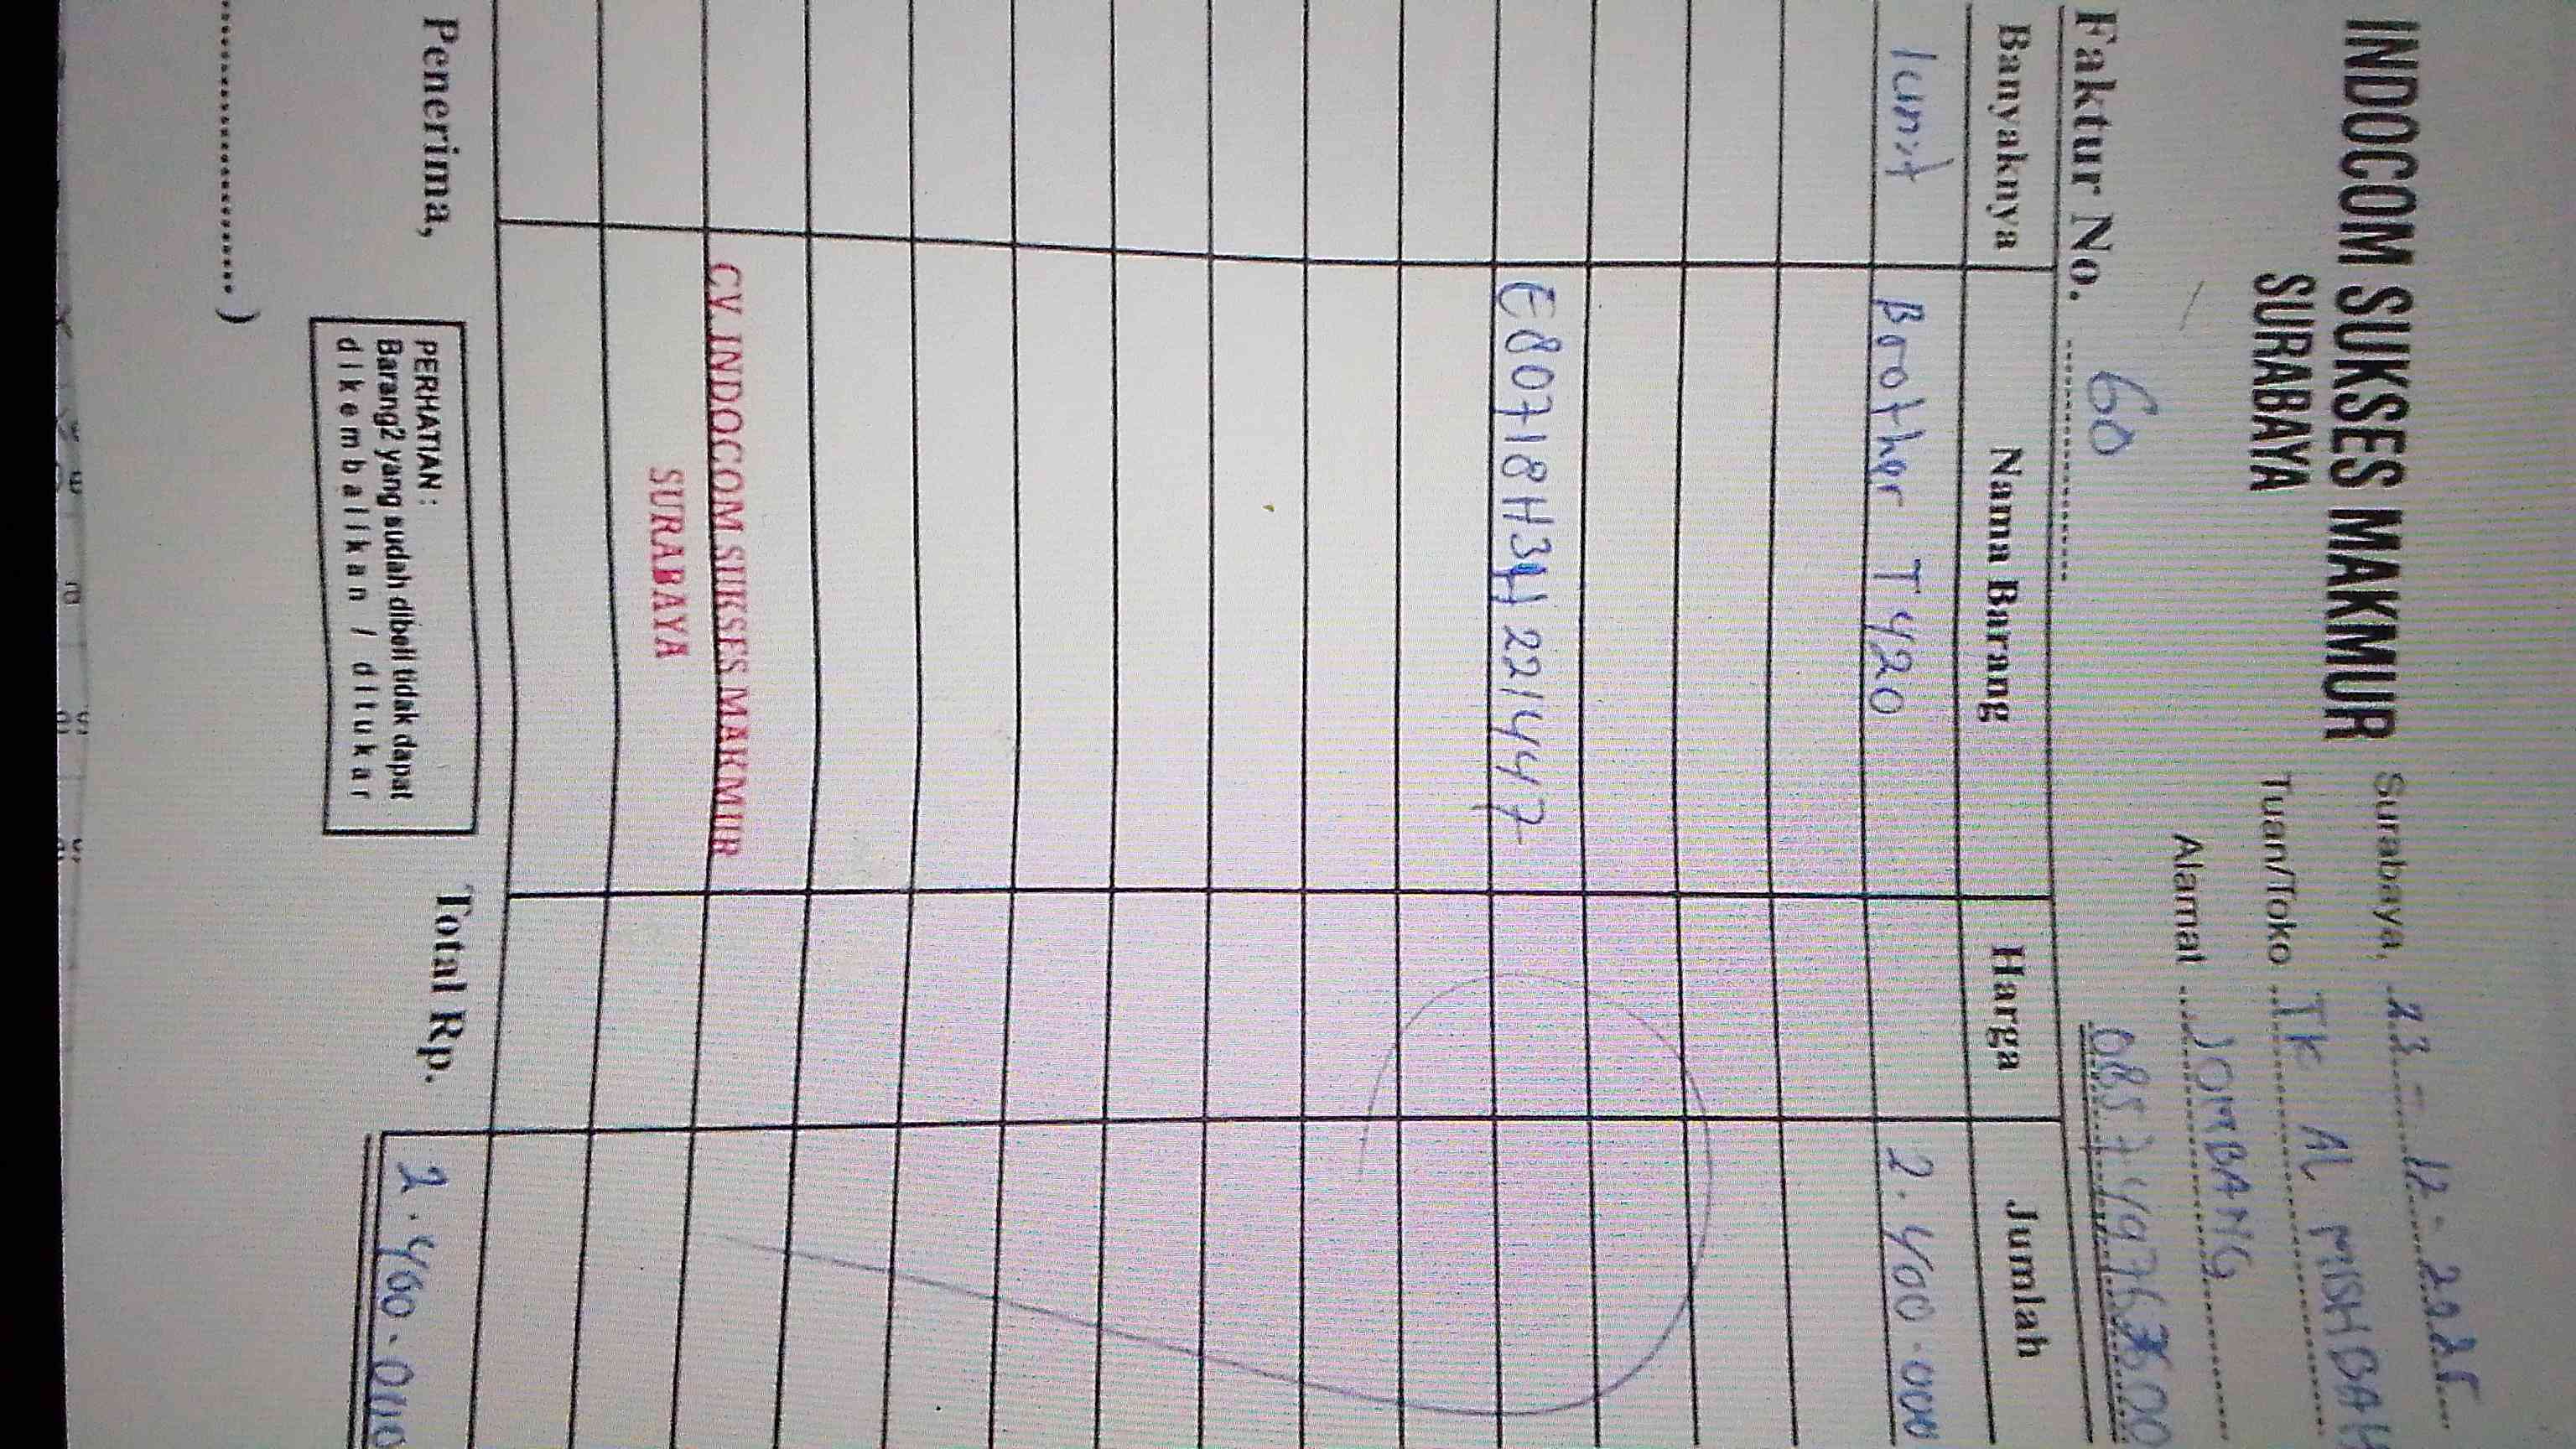 INDOCOM SUKSES MAKMUR
SURABAYA
Surabaya, 23 - 12 - 2025
Tuan/Toko TK AL MISHBAH
Alamat JOMBANG
Faktur No. 60
Banyaknya Nama Barang Harga Jumlah
1 unit Brother T420 2.400.000
E80718H3H221447
CV. INDOCOM SUKSES MAKMUR
SURABAYA
Penerima,
PERHATIAN :
Barang2 yang sudah dibeli tidak dapat
dikembalikan / ditukar
Total Rp. 2.400.000